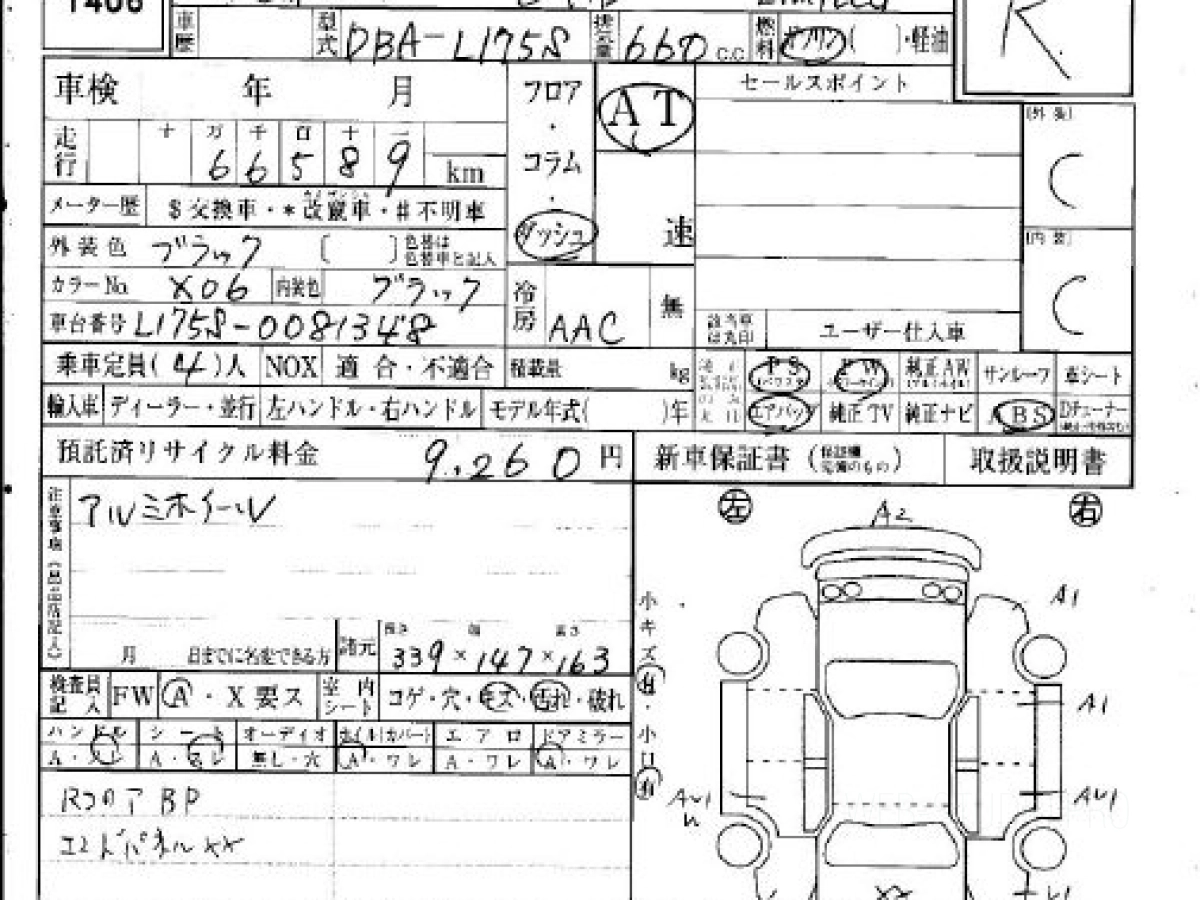 1406
R
車歴 型式 DBA-L175S 排気量 660 c.c 燃料 ガソリン( )・軽油
車検 年 月 フロア・コラム・ダッシュ AT 速 セールスポイント
(外装) C
走行 十 万 千 百 十 一
6 6 5 8 9 km
メーター歴 $交換車・*改竄車・#不明車
(内装) C
外装色 ブラック [ ] 色替は色替車と記入
カラーNo. X06 内装色 ブラック
冷房 AAC 無
車台番号 L175S-0081348
該当車は丸印 ユーザー仕入車
乗車定員(4)人 NOX 適合・不適合 積載量 kg
PS PW 純正AW サンルーフ 革シート
輸入車 ディーラー・並行 左ハンドル・右ハンドル モデル年式( )年
エアバッグ 純正TV 純正ナビ ABS Dチューナー
預託済リサイクル料金 9,260 円 新車保証書 取扱説明書
アルミホイール
月 日までに名変できる方 諸元 長さ 幅 高さ
339×147×163
検査員記入 FW A・X要ス 室内シート コゲ・穴・キズ・汚れ・破れ
ハンドル シート オーディオ ホイル(カバー) エアロ ドアミラー
A・スレ A・スレ 無し・穴 A・ワレ A・ワレ A・ワレ
RフロアBP
エンドパネルXX
左 右
A2
A1
A1
AU1
AU1
小キズ有・小凹有
XX